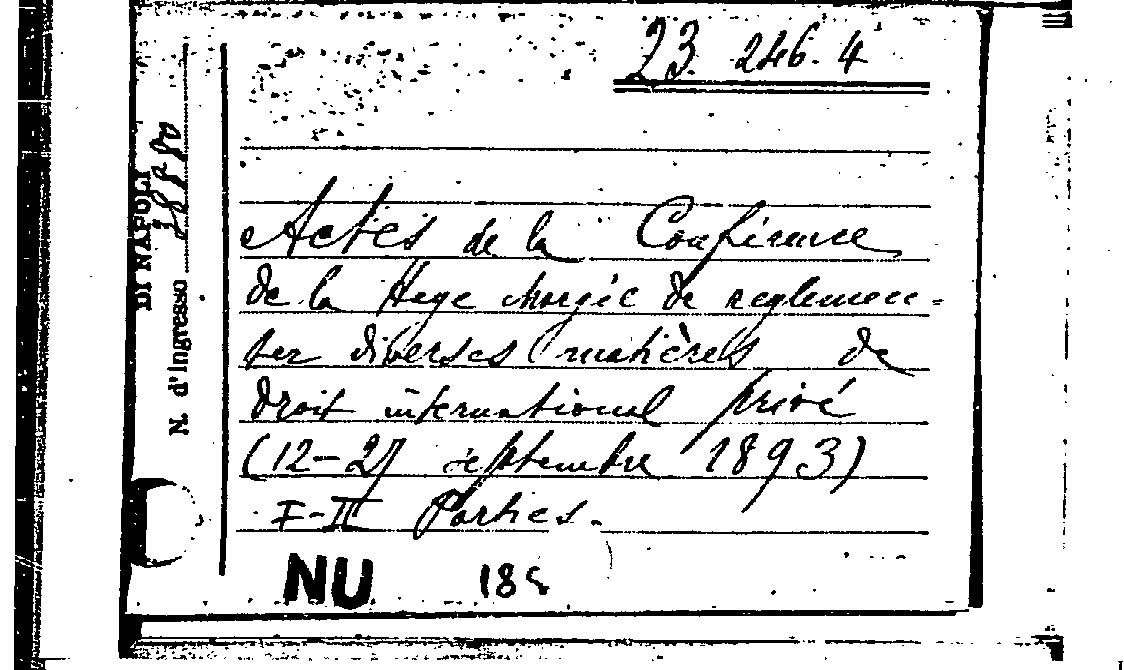 23. 246. 4
Actes de la Conférence
de la Haye chargée de reglemen=
ter diverses matières de
droit international privé
(12-27 septembre 1893)
I-II Parties.
NU 188
DI NAPOLI
N. d'ingresso